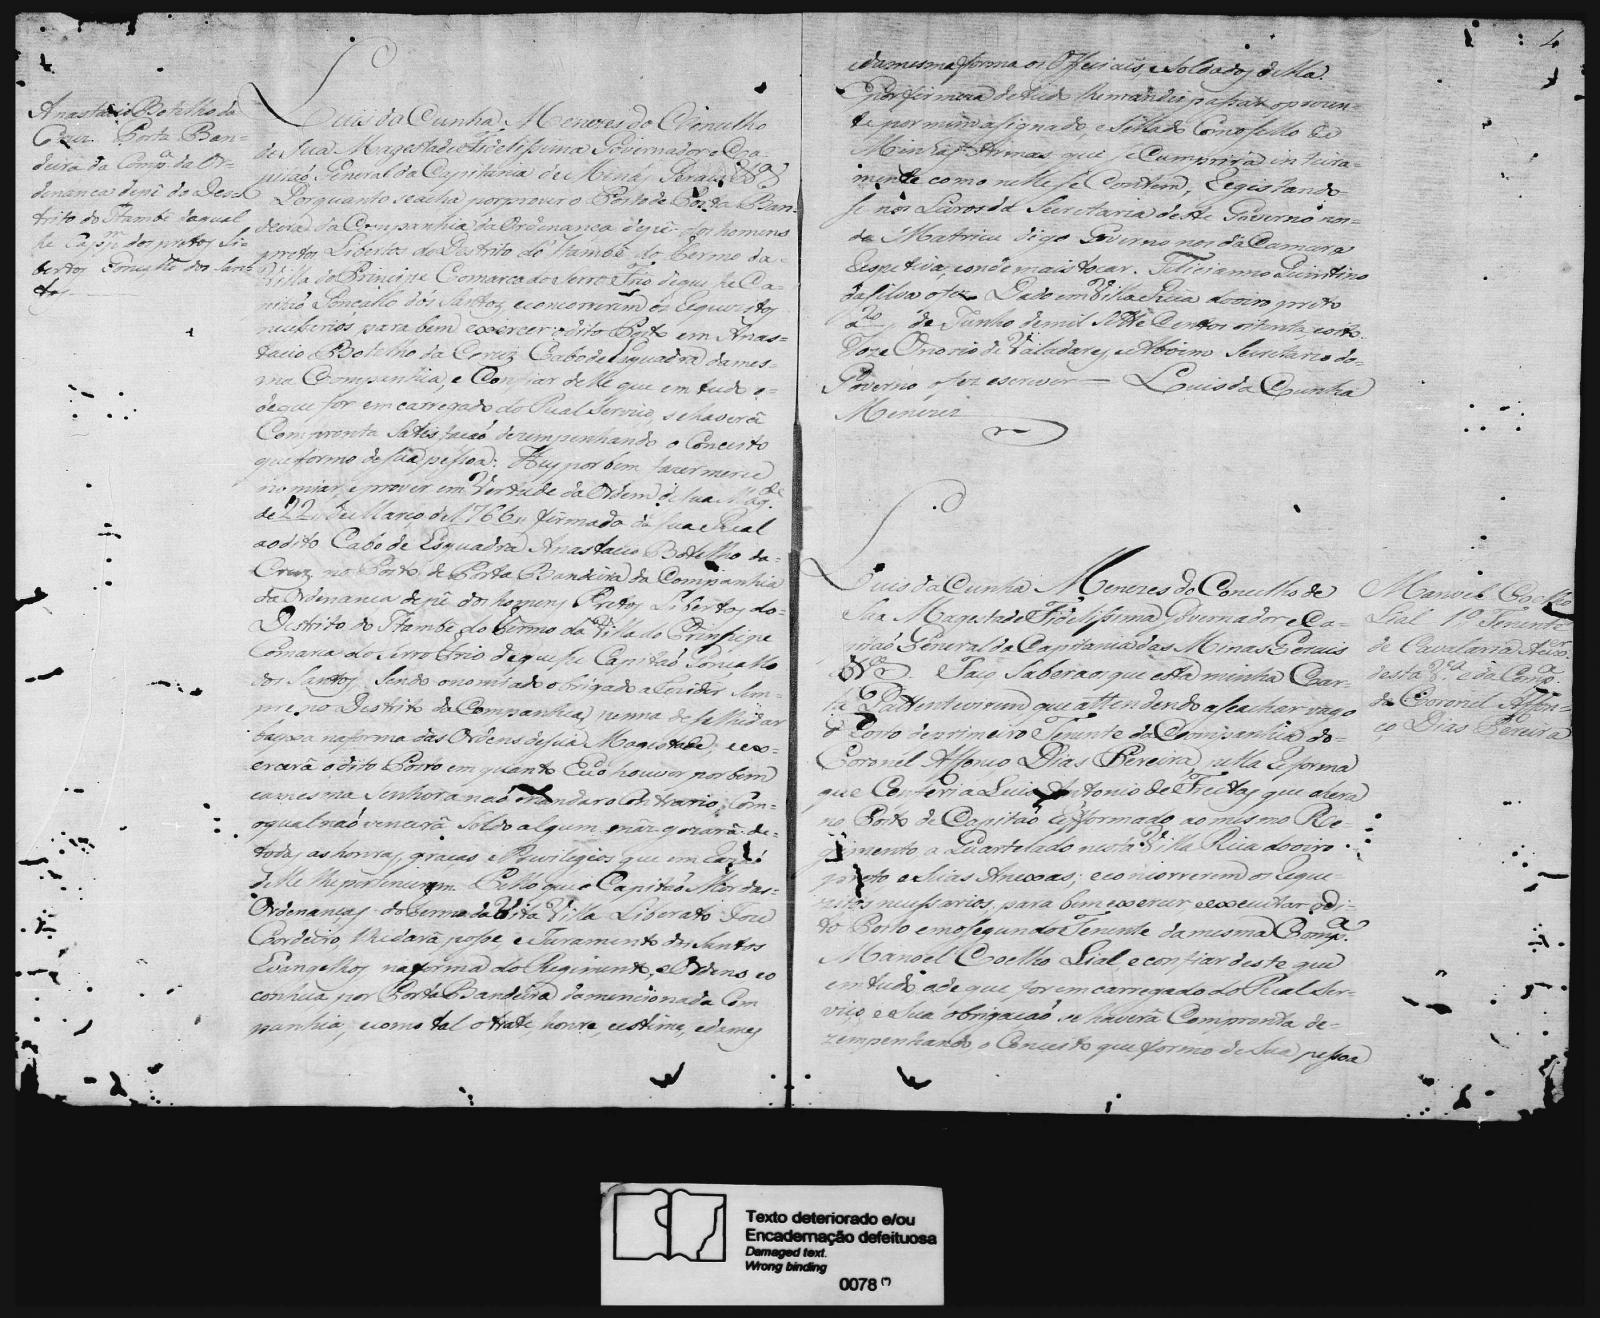 Anastacio Botelho da
Cruz Porta Ban-
deira da Comp.ª da Or-
denança de pé do Des-
trito do Itambé da qual
he Cap.m dos pretos li-
bertos Gonçallo dos San-
tos
Luis da Cunha Menezes do Concelho
de Sua Magestade Fidelissima Governador e Ca-
pitaõ General da Capitania de Minas Geraes &ª
Porquanto se acha por prover o Posto de Porta Ban-
deira da Companhia da Ordenança de pé dos homens
pretos Libertos do Destrito do Itambé do Termo da
Villa do Principe Comarca do Serro Frio de que he Ca-
pitaõ Gonçallo dos Santos e concorrerem os Requezitos
necessarios para bem exercer o dito Posto em Anas-
tacio Botelho da Cruz Cabo de Esquadra da mes-
ma Companhia, e Confiar delle que em tudo o
de que for em carregado do Real Serviço, se haverá
Com pronta Satisfaçaõ dezempenhando o Conceito
que formo de sua pessoa: Hey por bem fazer merce
nomiar, e prover em Vertude da Ordem de Sua Mag.de
de 22 de Março de 1766,, firmada da Sua Real
ao dito Cabo de Esquadra Anastacio Botelho da
Cruz, no Posto de Porta Bandeira da Companhia
da Ordenança de pé dos homens Pretos Libertos do
Destrito do Itambé do Termo da Villa do Prinsipe
Comarca do Serro Frio de que he Capitaõ Gonçallo
dos Santos, Sendo o nomiado obrigado a Rezidir Sem-
pre no Destrito da Companhia, penna de se lhe dar
baixa na forma das Ordens de Sua Magestade; e ex-
ercerá o dito Posto em quanto Eu o houver por bem
e a mesma Senhora naõ mandar o Contrario; Com
o qual naõ vencerá Soldo algum, mas gozará de
todas as honras, graças e Privilegios que em Razaõ
delle lhe pertencerem. Pello que o Capitaõ Mor das
Ordenanças do Termo da dita Villa Liberato Joze
Cordeiro, lhe dará posse, e Juramento dos Santos
Evangelhos na forma do Regimento, e Ordens e o
conheça por Porta Bandeira da mencionada Com
panhia, e como tal o trate, honre, e estime, e da mes
4
e da mesma forma os Officiais e Soldados della.
E por firmeza de tudo lhe mandei passar o prezen-
te por mim asignado, e Sellado Com o sello de
Minhas Armas que se Cumprirá inteira-
mente como nelle se Contem, Registando-
se nos Livros da Secretaria deste Governo nos
da Matricula digo Governo nos da Camara
Respetiva, e onde mais tocar. Feliciano Quintino
da Silva o fez. Dado em Villa Rica do oiro preto
a de Junho de mil Sette Centos oitenta, e oito.
Joze Onorio de Valadares e Aboim Secretario do
Governo o fez escrever — Luis da Cunha
Menezes
Luis da Cunha Menezes do Concelho de
Sua Magestade Fidelissima Governador e Ca-
pitaõ General da Capitania das Minas Geraes
&ª Faço Saber aos que esta minha Car-
ta Pattente virem que attendendo a se achar vago
o Posto de primeiro Tenente da Companhia do
Coronel Affonço Dias Pereira, pella Reforma
que Conferi a Luis Antonio de Freitas que o era
no Posto de Capitaõ Refformado ao mismo Re-
gimento, a Quartelado nesta Villa Rica do oiro
preto e Suas Anexas; e concorrerem os Reque-
zitos necessarios, para bem exercer, e exzecutar o di-
to Posto em o segundo Tenente da mesma Comp.ª
Manoel Coelho Lial e confiar deste que
em tudo o de que for em carregado do Real Ser-
viço, e e sua obrigaçaõ se haverá Com pronta de-
zempenhando o Conceito que formo de Sua pessoa
Manoel Coelho
Lial 1º Tenente
de Cavalaria Aux.ar
desta V.ª e da Comp.ª
do Coronel Affon-
ço Dias Pereira
Texto deteriorado e/ou
Encadernação defeituosa
Damaged text.
Wrong binding
0078 (*)